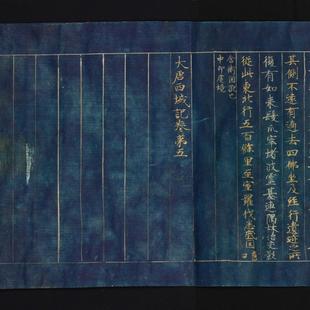 其側不遠有過去四佛坐及經行遺迹之所
復有如來髮爪窣堵波靈基連隅林沼交影
從此東北行五百餘里至室羅伐悉底國
舍衛國訛也
中印度境
大唐西域記卷第五